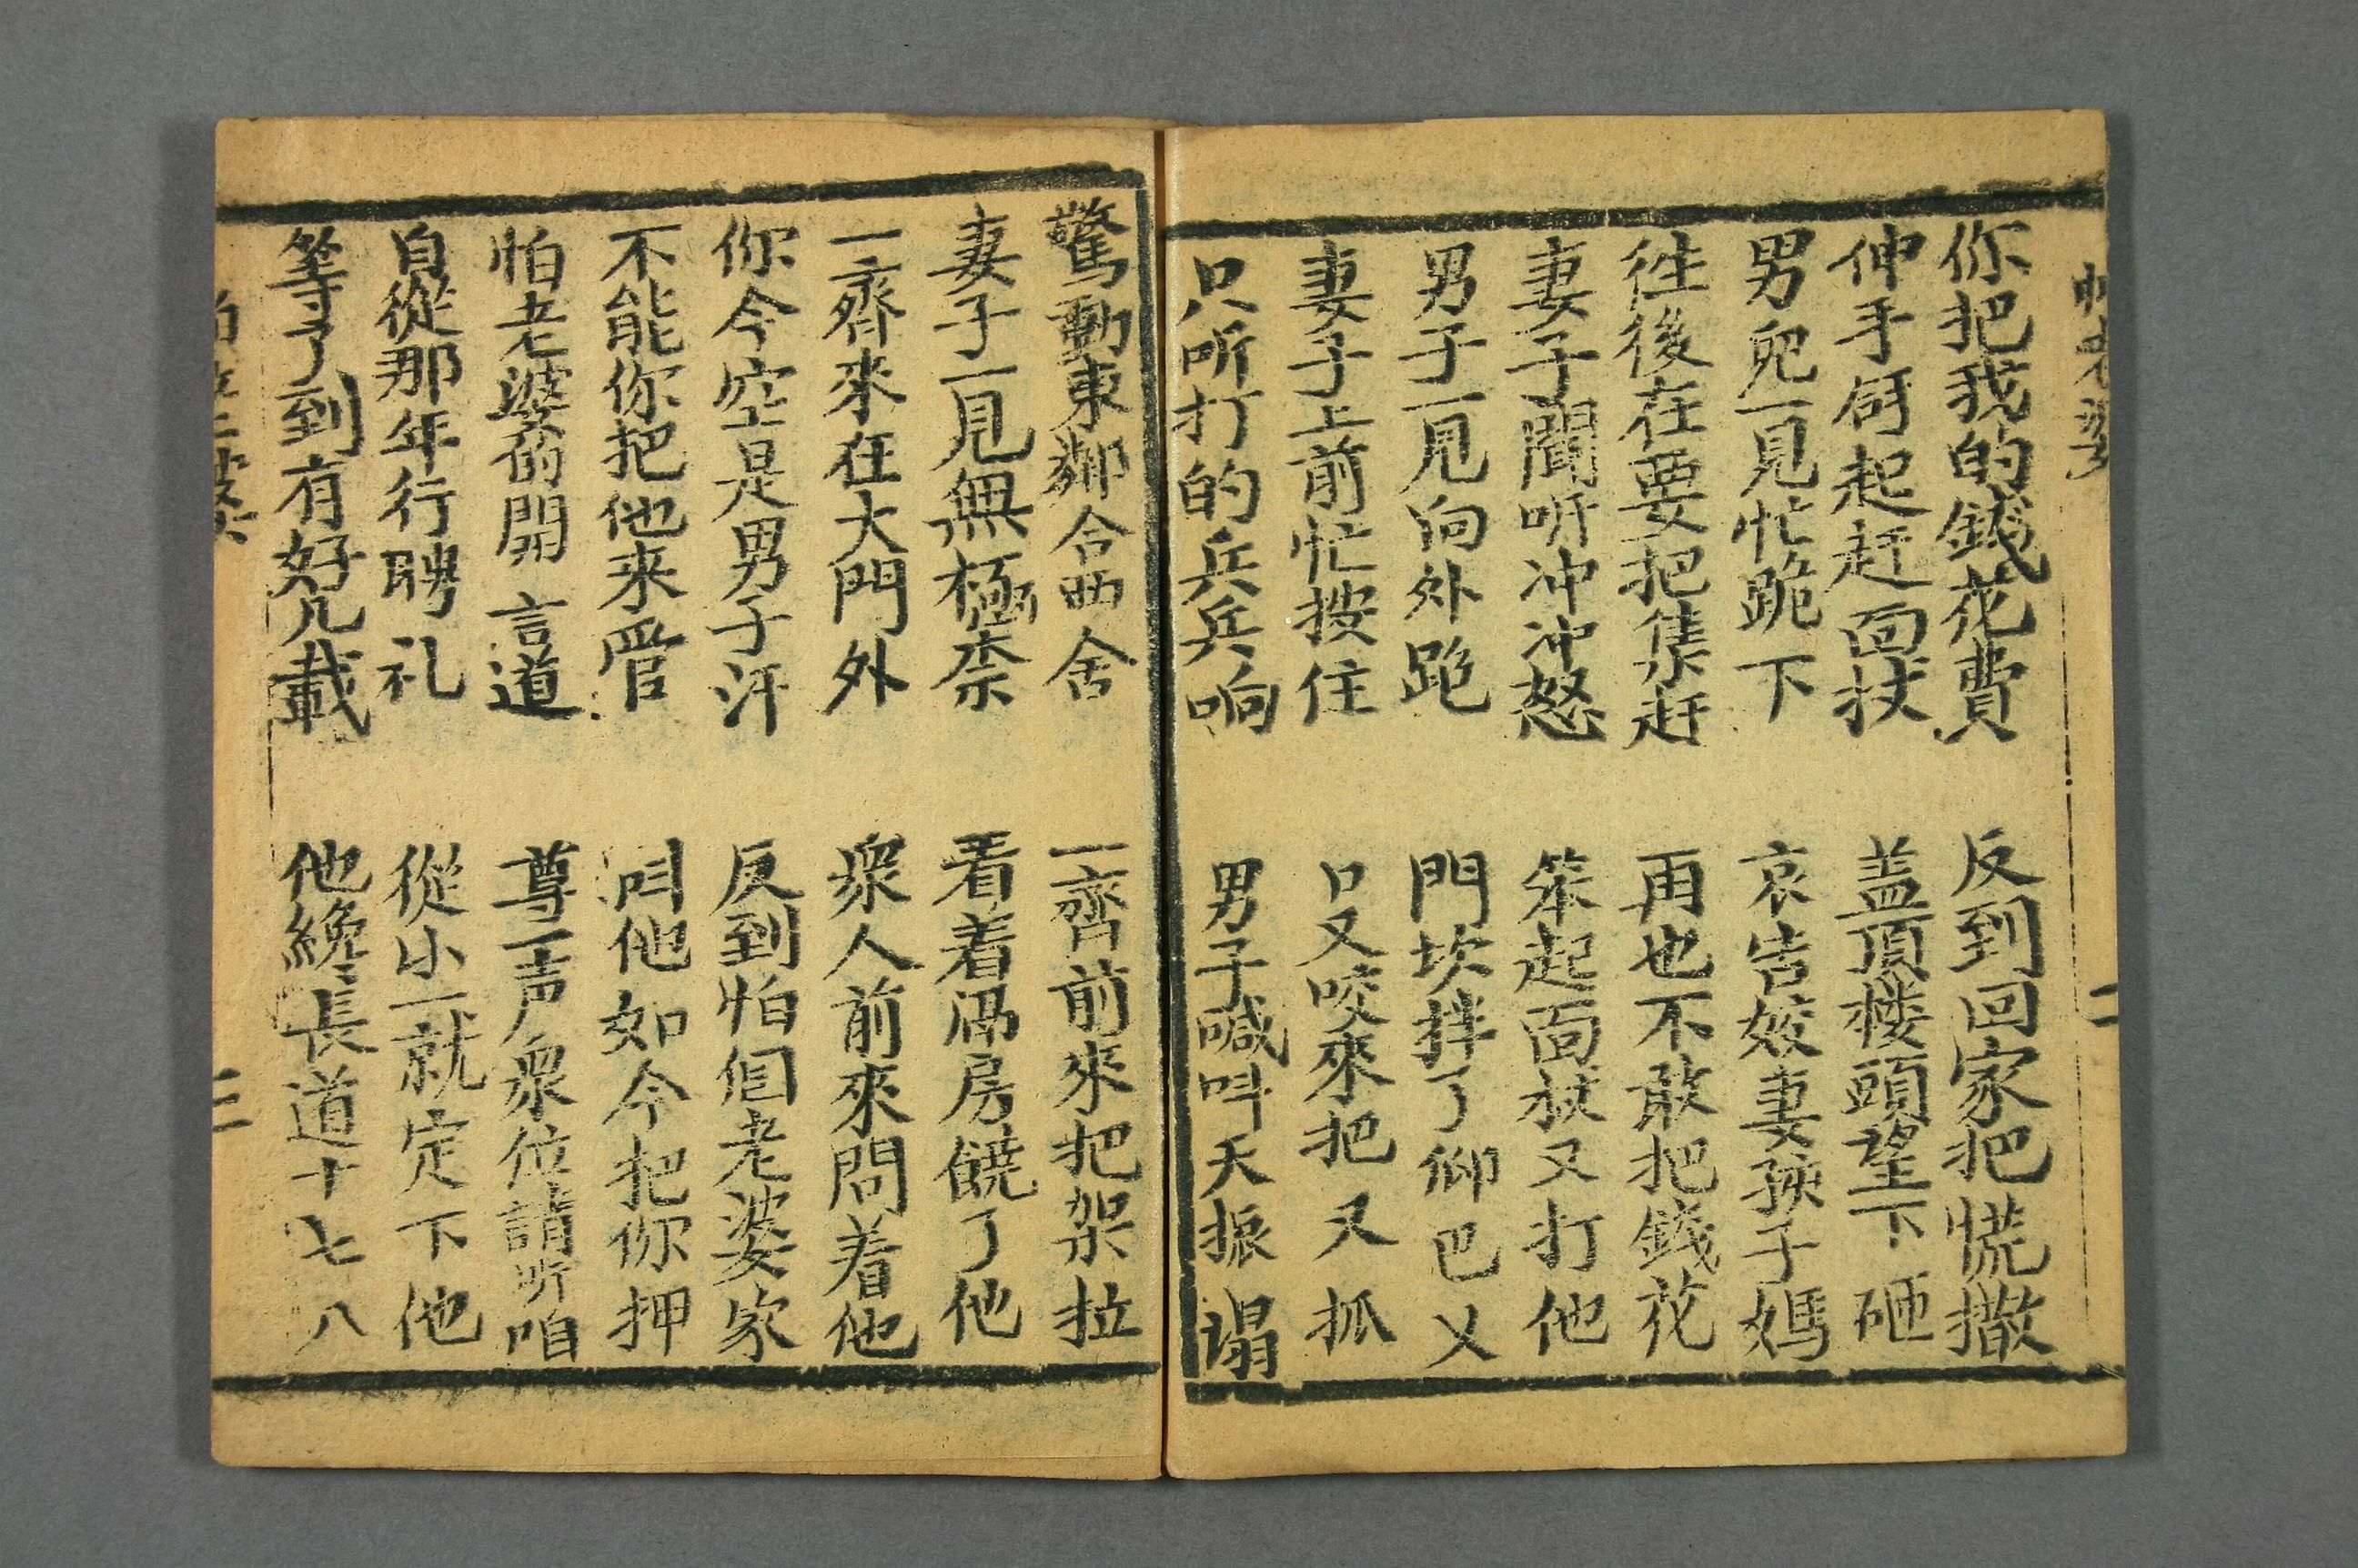 你把我的錢花費 反到回家把慌撒
伸手舒起赶面杖 盖頂摟頭望下砸
男兒一見忙跪下 哀告姣妻孩子媽
徃後在要把集赶 再也不敢把錢花
妻子聞听冲冲怒 笨起面杖又打他
男子一見向外跑 門坎拌了仰巴乂
妻子上前忙按住 口又咬來把又抓
只听打的兵兵响 男子喊呌天振謁
驚動東鄰合西舍 一齊前來把架拉
妻子一見無極柰 看着隔房饒了他
一齊來在大門外 衆人前來問着他
你今空是男子汗 反到怕個老婆家
不能你把他来管 問他如今把你押
怕老婆的開言道 尊一声衆位請听咱
自從那年行聘礼 從小一就定下他
等了到有好几載 他纔長道十七八
二
三